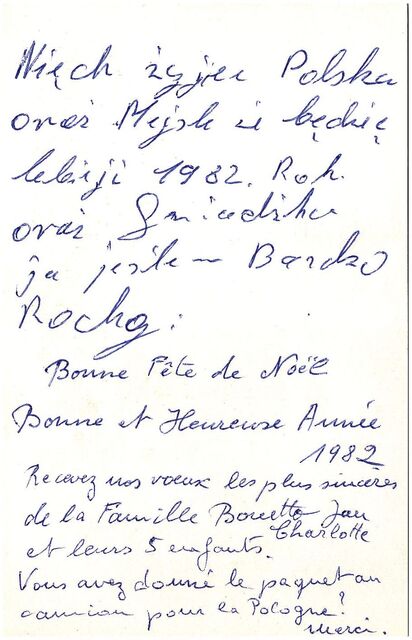 Nięch żyjee Polska
oraz Myśle że będzię
lebieji 1982. Roh.
oraz
ja jeste— Bardzo
Kochg:
Bonne Fête de Noël
Bonne et Heureuse Année
1982
Recevez nos vœux les plus sincères
de la Famille Bouetto Jan
Charlotte
et leurs 5 enfants.
Vous avez donné le paquet au
camion pour la Pologne?
Merci.